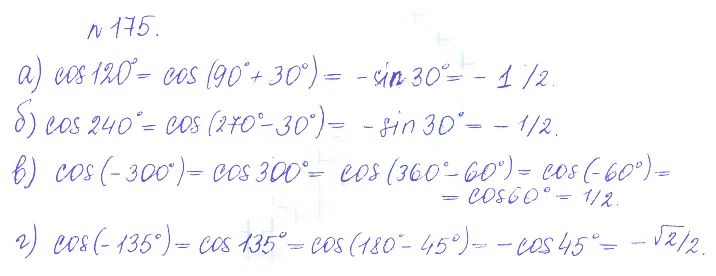 n 175.
а) cos 120° = cos (90° + 30°) = - sin 30° = - 1/2.
б) cos 240° = cos (270° - 30°) = - sin 30° = - 1/2.
в) cos (-300°) = cos 300° = cos (360° - 60°) = cos (-60°) =
= cos 60° = 1/2.
г) cos (-135°) = cos 135° = cos (180° - 45°) = - cos 45° = - √2/2.